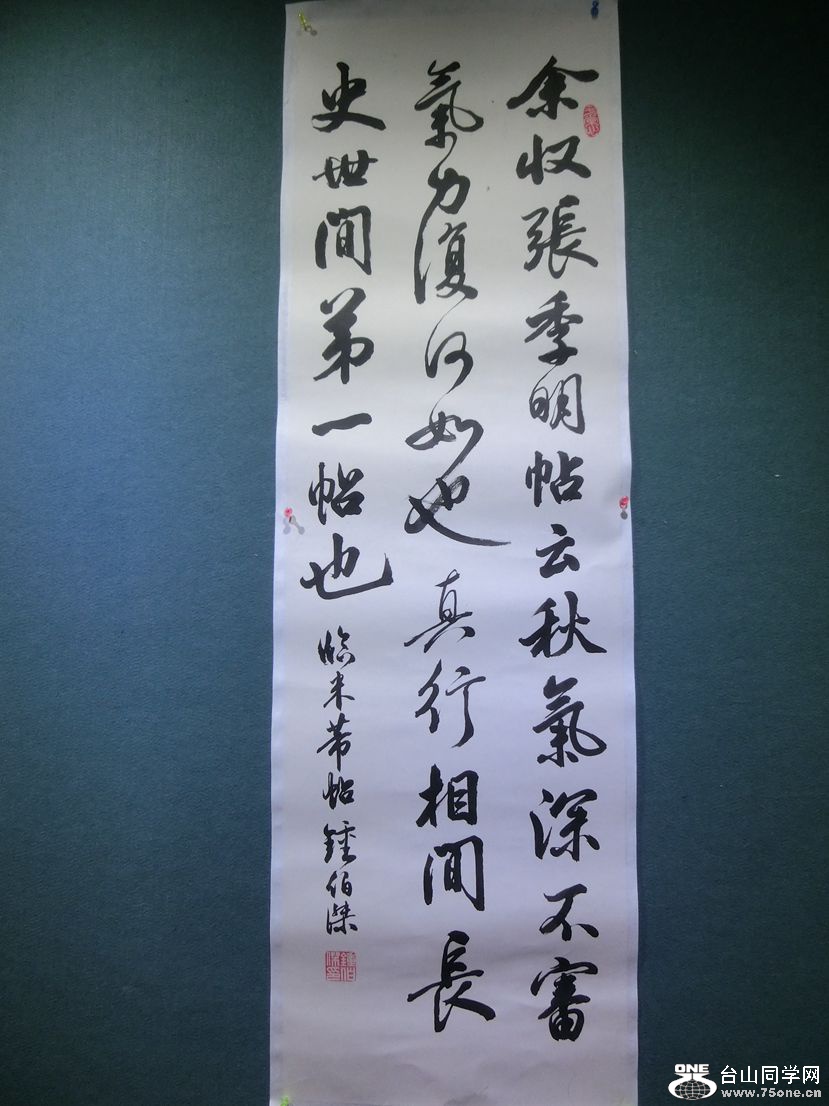 余収張季明帖云秋氣深不審
氣力復何如也真行相間長
史世間第一帖也
臨米芾帖鍾伯傑
鍾伯傑印
ONE 台山同学网
www.75one.cn